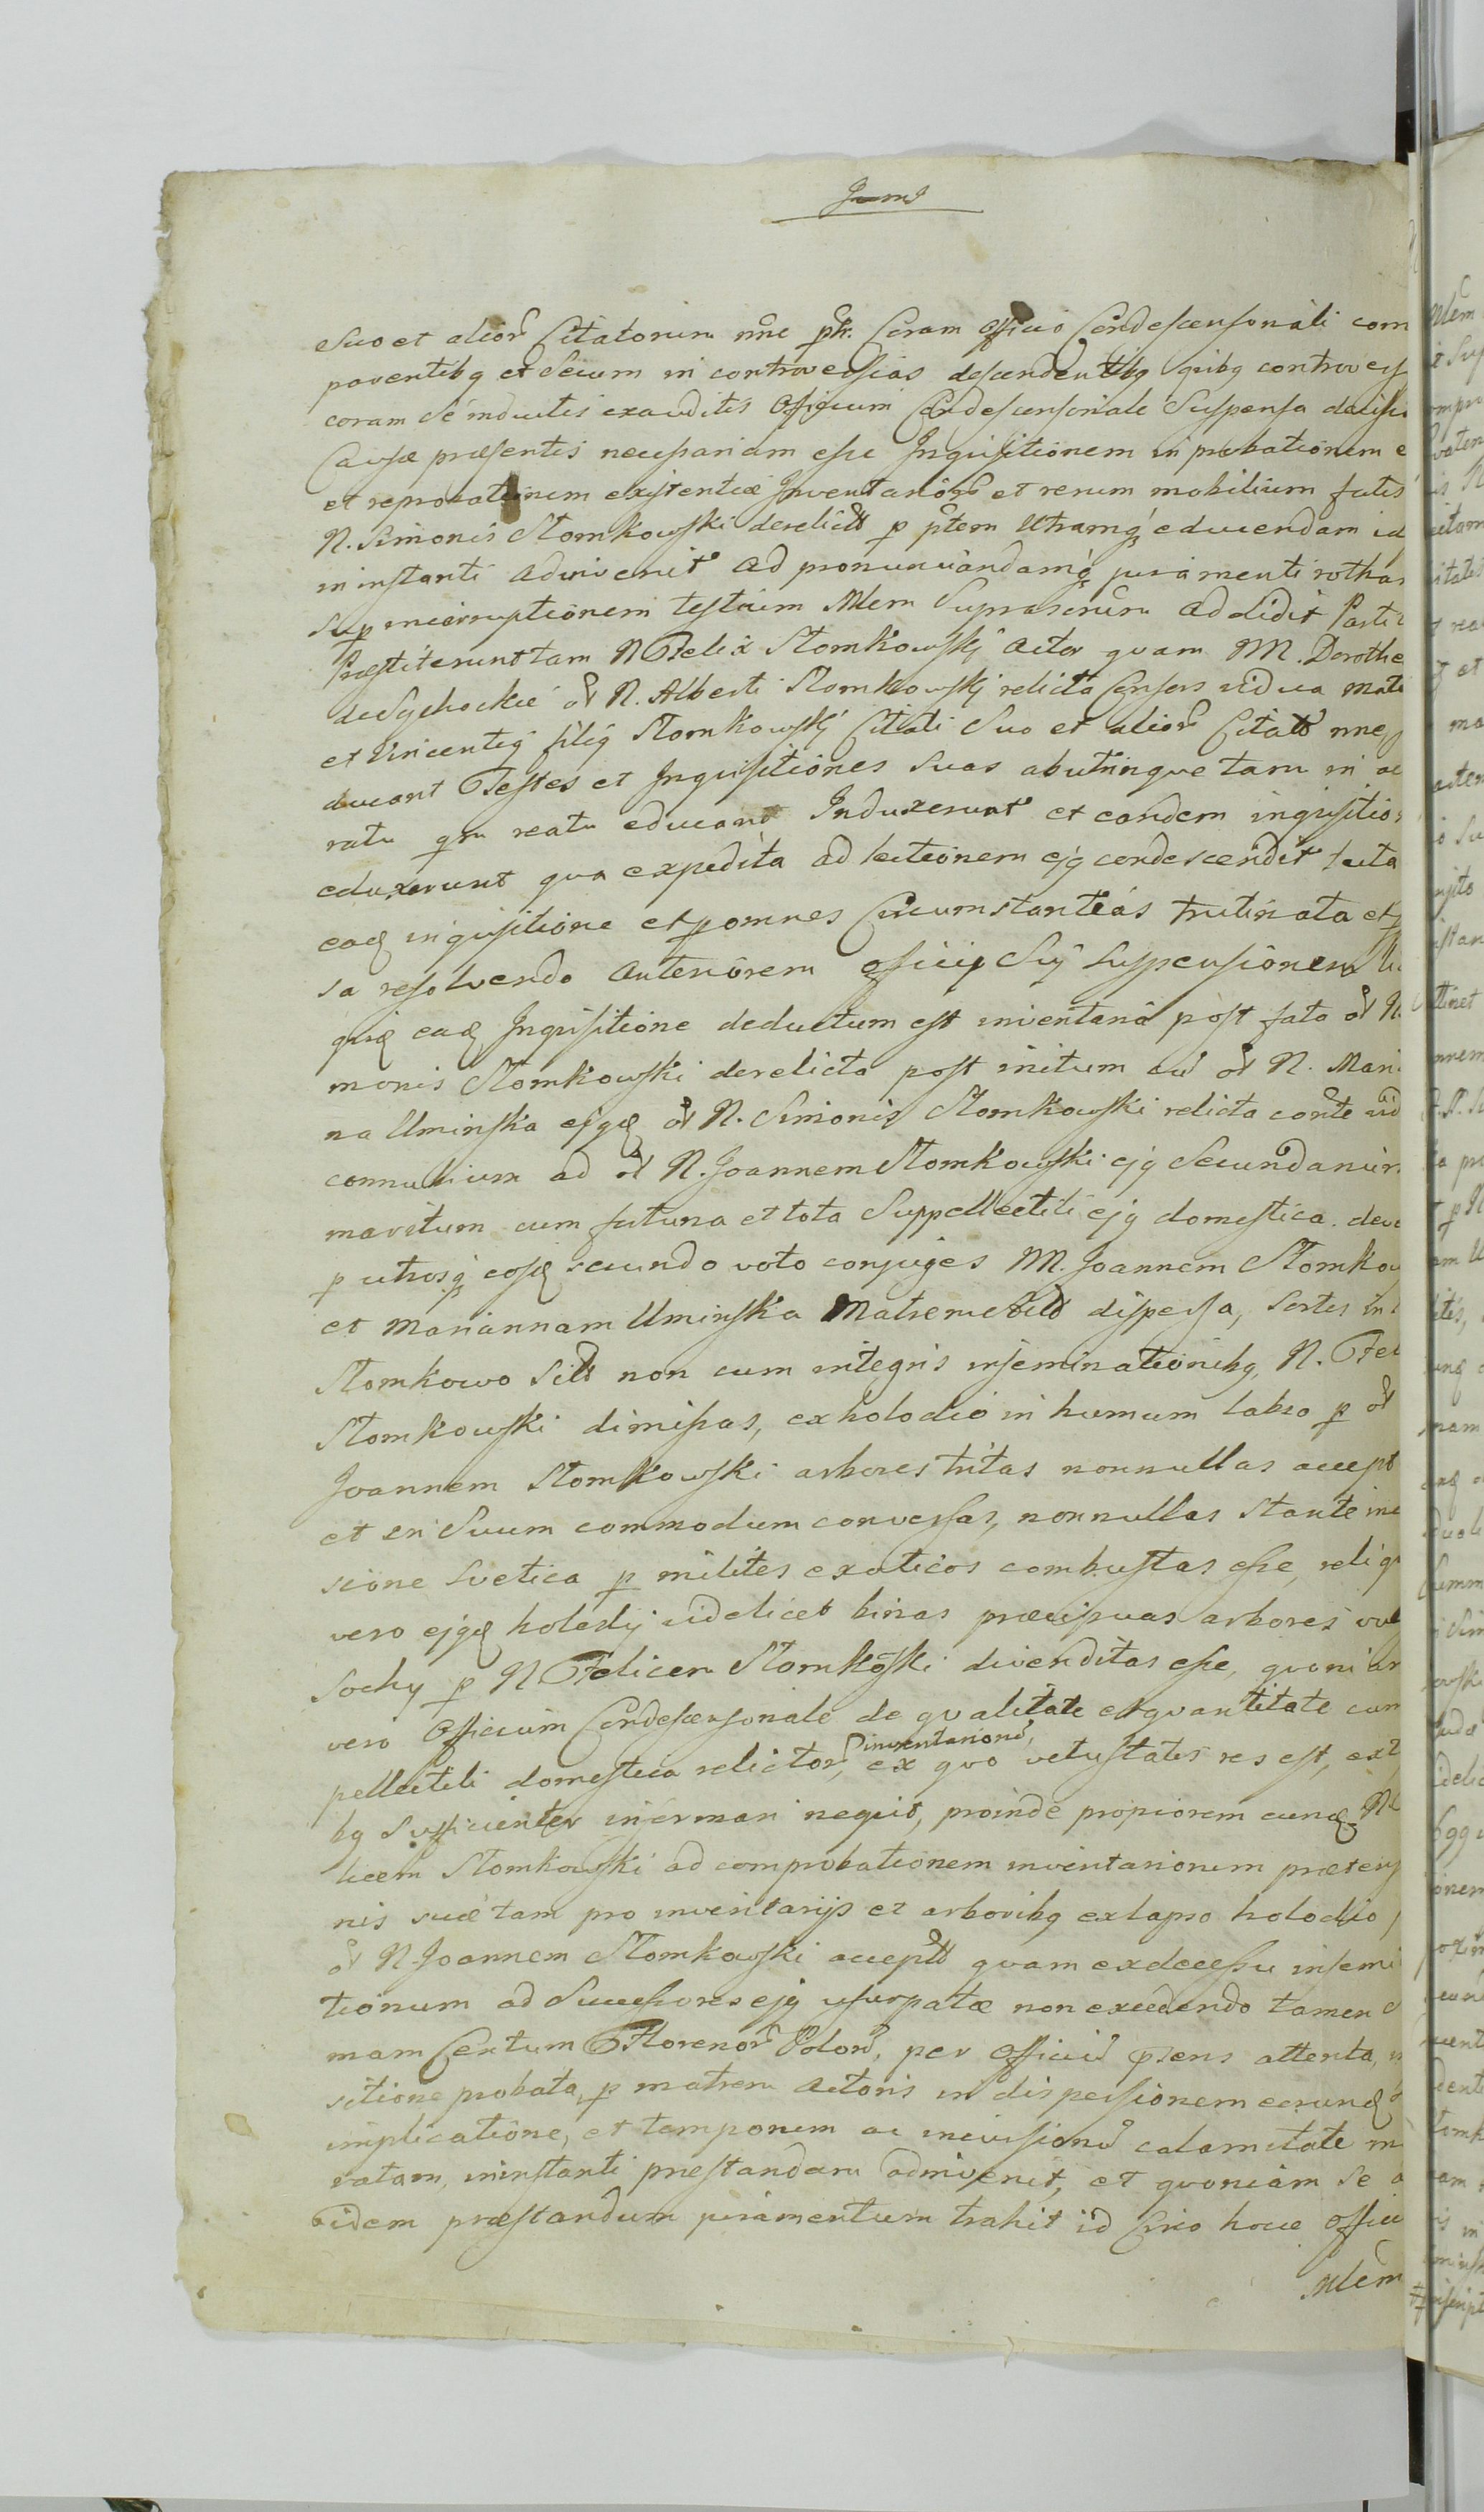 suo et alior Citatorum nne pr. Coram Officio Condescensonali com
parentibg et Secum in controversias descendentibg quibg controvers
coram Se inductis exauditis Officium Condescensoriale Suspensa decisi
Causæ præsentis necessariam esse Inquisitionem in probationem e
et reprobationem existentiæ Inventarior et rerum mobilium fatis
N. Simonis Słomkowski derelict p ptem Utramq educendam id
in instanti adinvenit ad pronunciandamq juramenti rotham
Sup incorruptionem testium Mlem Suprascrum addidit Parti
Præstiterunt tam N Felix Słomkowskj actor quam M. Dorothe
de Sychockie ol N. Alberti Słomkowskj relicta Consors vidua Mate
et Vincentig filig Słomkowskj Citati Suo et alior Citat nne
ducant Testes et Inquisitiones Suas abutrinque tam in ac
ratu qm reatu educant Induxerunt et eandem inquisitio
eduxerunt qua expedita ad lectionem ejg condescendit lecta
eaq inquisitione et p omnes Circumstantias trutinata et
sa resolvendo anteriorem officig Sui Suspensionem
quia eaq Inquisitione deductum est inventaria post fata ol N
monis Słomkowski derelicta post initum cu ol N. Mari
na Uminska ejgq ol N. Simonis Słomkowski relicta conte vid
connubium ad ol N. Joannem Słomkowski ejg Secundarium
maritum cum fortuna et tota Suppellectili ejg domestica deve
p utrosq eosq secundo voto conjuges M. Joannem Słomkow
et Mariannam Uminska Matrem dispersa, Sortes in
Słomkowo Sit non cum integris inseminationibg N. Fel
Słomkowski dimissas, ex holodio in humum labso p ol
Joannem Słomkowski arbores tritas nonnullas accept
et in Suum commodum conversas, nonnullas Stante inc
sione Svetica p milites exoticos combustas esse, reliq
vero ejgq holodij videlicet binas præcipuas arbores vul
Sochy p N Felicem Słomkoski divenditas esse, quoniam
vero Officium Condescensoriale de qualitate et quantitate cum
pellectili domestica relictor, inventarioru, ex quo vetustatis res est, ext
bg Sufficienter informari nequit, proinde propiorem eunq N
licem Słomkowski ad comprobationem inventariorum prætens
nis suæ tam pro inventarijs et arboribg ex lapso holodio
ol N. Joannem Słomkowski accept quam ex decessu insemi
tionum ad Successores ejg usurpatæ non excedendo tamen
mam Centum Florenor Polor, per officiu pæens attenta,
sitione probata, p matrem Actoris in dispersionem earunq
implicatione, et temporum ac incursionu calamitate
ratam, in instanti præstandam adinvenit, et quoniam Se
ibidem præstandum juramentum trahit id Circo hocce Offici
Mlem